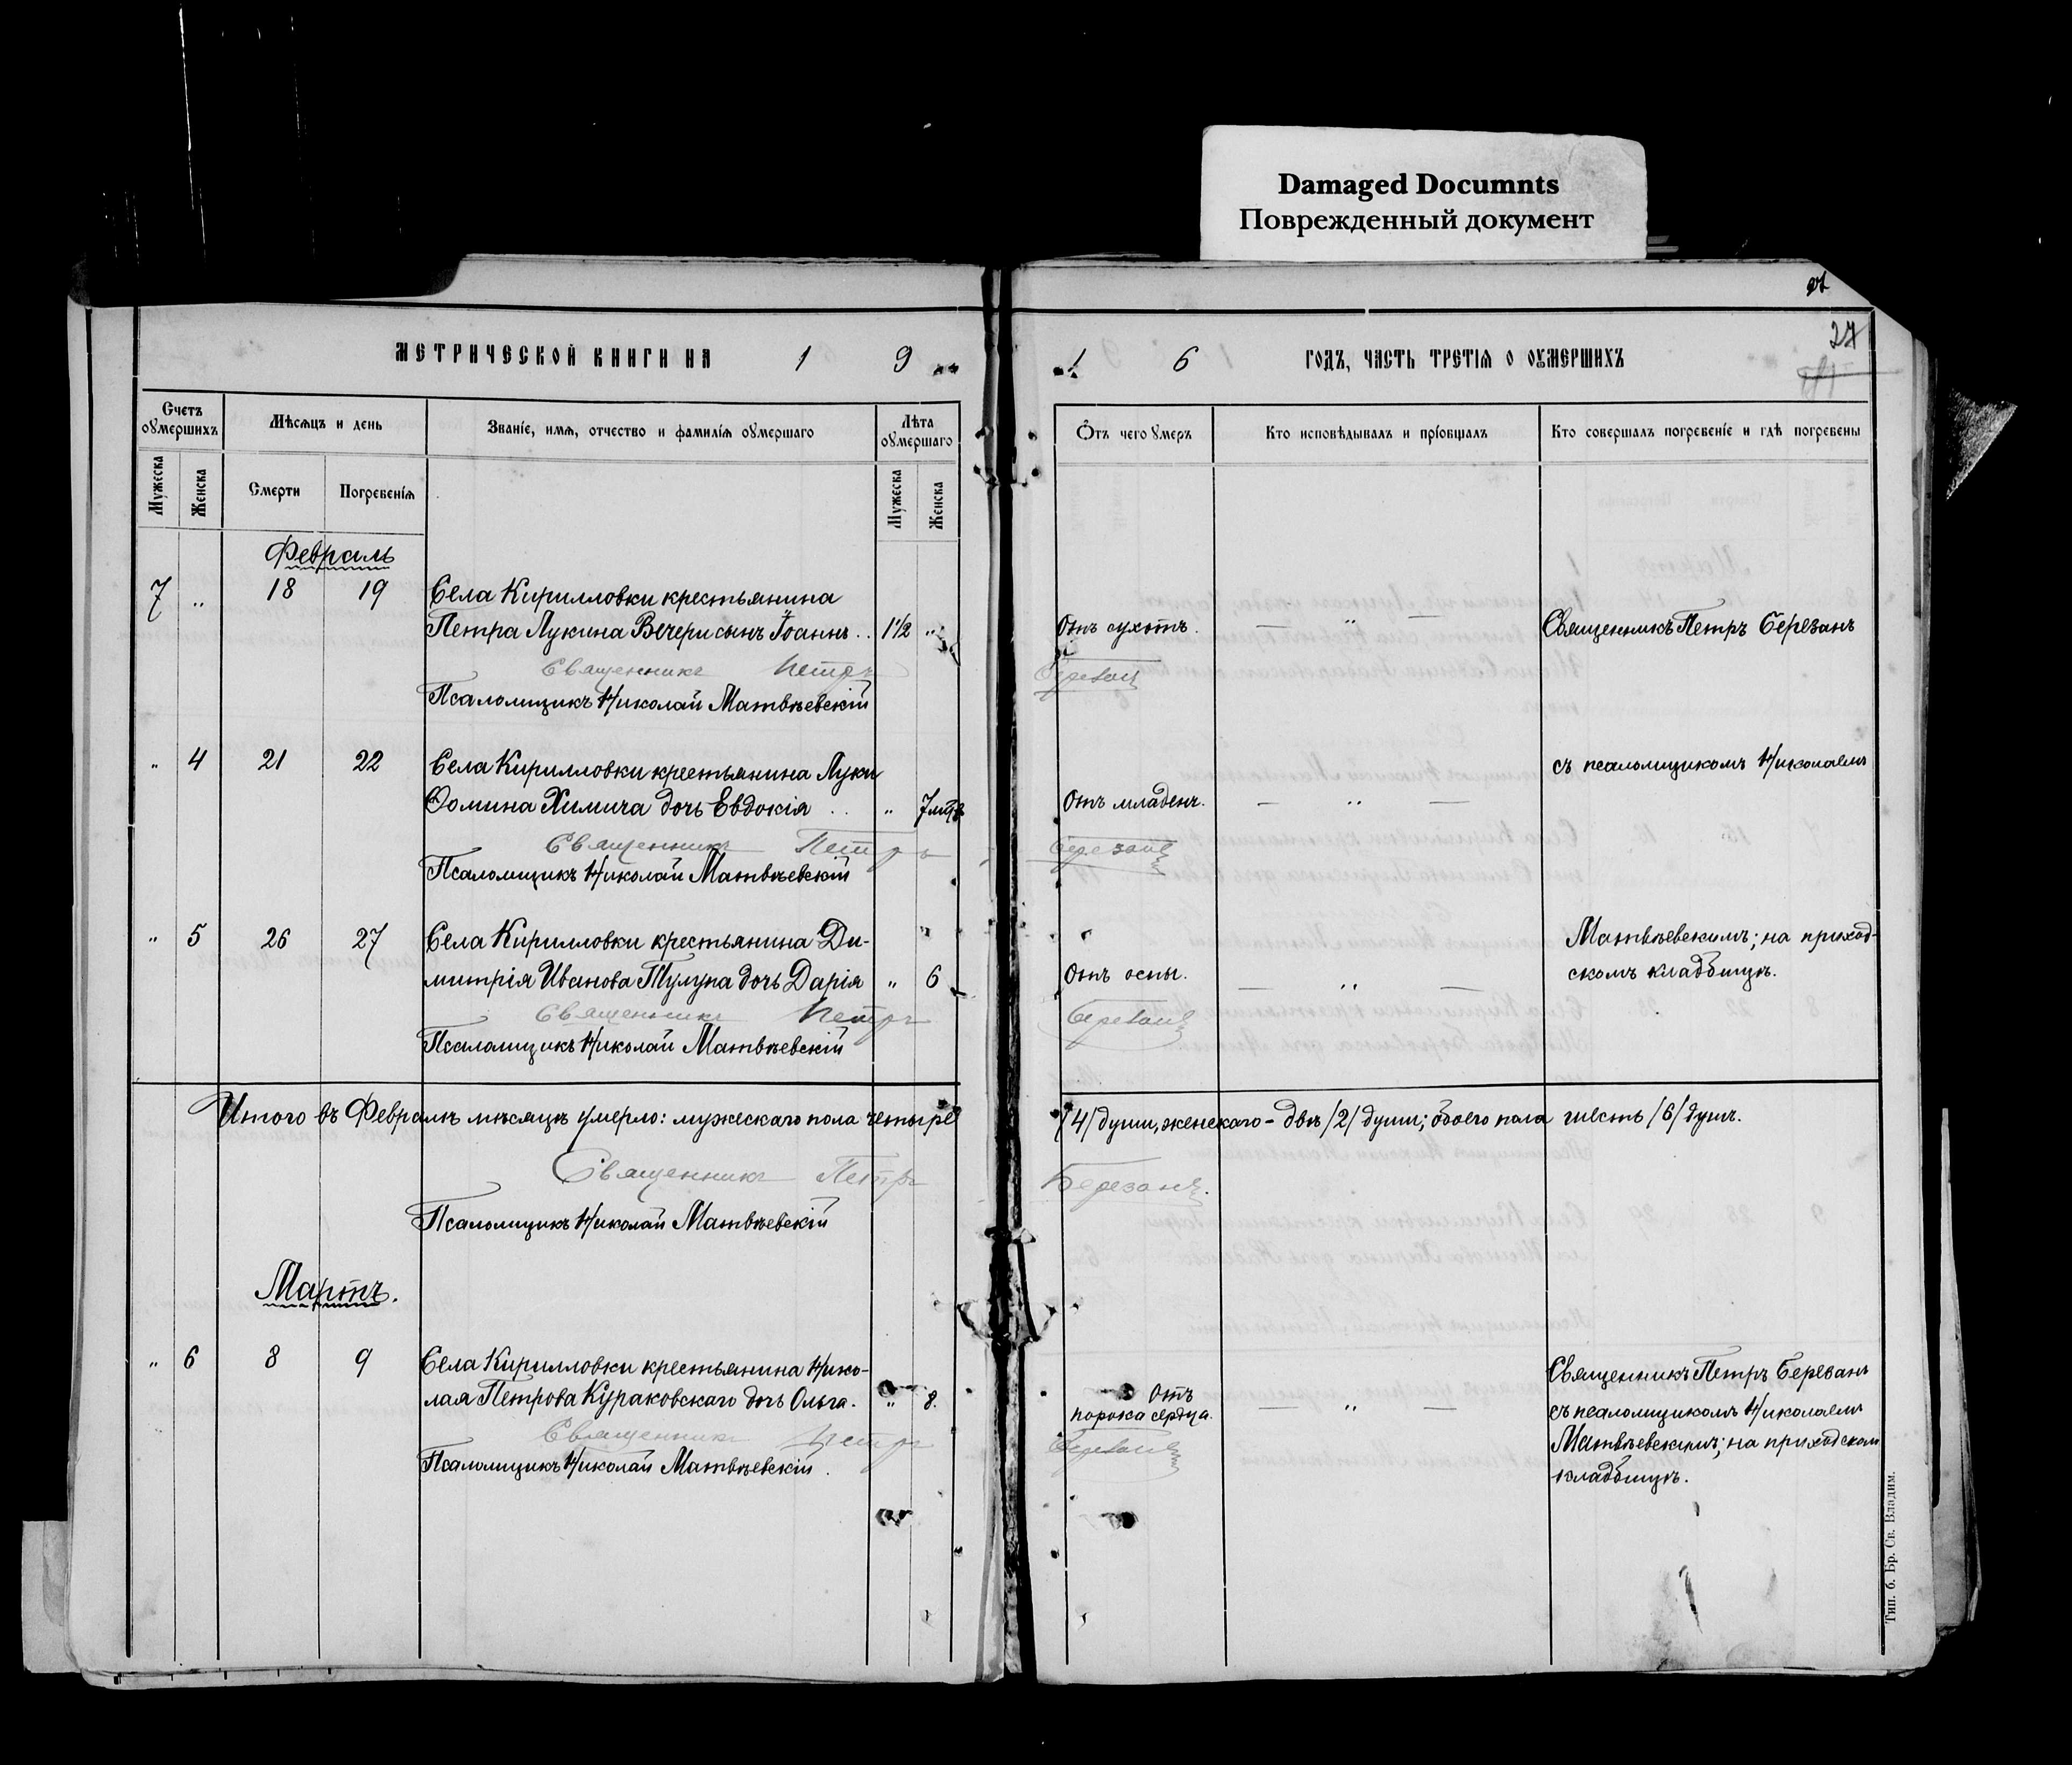 Damaged Documnts
Поврежденный документ
27
МЕТРИЧЕСКОЙ КНИГИ НА 1 9
1 6 ГОДЪ, ЧАСТЬ ТРЕТІЯ О ОУМЕРШИХЪ
Счетъ оумершихъ
Мѣсяцъ и день
Званіе, имя, отчество и фамилія оумершаго
Лѣта оумершаго
Отъ чего умеръ
Кто исповѣдывалъ и пріобщалъ
Кто совершалъ погребеніе и гдѣ погребены
Мужеска
Женска
Смерти
Погребенія
Мужеска
Женска
Февраль
7 " 18 19 Села Кирилловки крестьянина
Петра Лукина Вечери сынъ Іоаннъ.. 1 1/2 " Отъ сухотъ. — " — Священникъ Петръ Березанъ
Священникъ Петръ Березанъ
Псаломщикъ Николай Матвѣевскій
" 4 21 22 Села Кирилловки крестьянина Луки с псаломщикомъ Николаемъ
Ѳомина Химича дочь Евдокія .. " 7 мцв. Отъ младен. — " —
Священникъ Петръ Березанъ
Псаломщикъ Николай Матвѣевскій
" 5 26 27 Села Кирилловки крестьянина Ди- Матвѣевскимъ; на приход-
митрія Иванова Тулупа дочь Дарія " 6 Отъ оспы. — " — скомъ кладбищѣ.
Священникъ Петръ Березанъ
Псаломщикъ Николай Матвѣевскій
Итого въ Февралѣ мѣсяцѣ умерло: мужескаго пола четыре /4/ души, женскаго – двѣ /2/ души; обоего пола шесть /6/ душъ.
Священникъ Петръ Березанъ.
Псаломщикъ Николай Матвѣевскій
Мартъ.
" 6 8 9 Села Кирилловки крестьянина Нико- Священникъ Петръ Березанъ
лая Петрова Кураковскаго дочь Ольга. " 8. Отъ порока сердца. — " — съ псаломщикомъ Николаемъ
Священникъ Петръ Березанъ Матвѣевскимъ; на приходском
Псаломщикъ Николай Матвѣевскій. кладбищѣ.
Тип. б. Бр. Св. Владим.